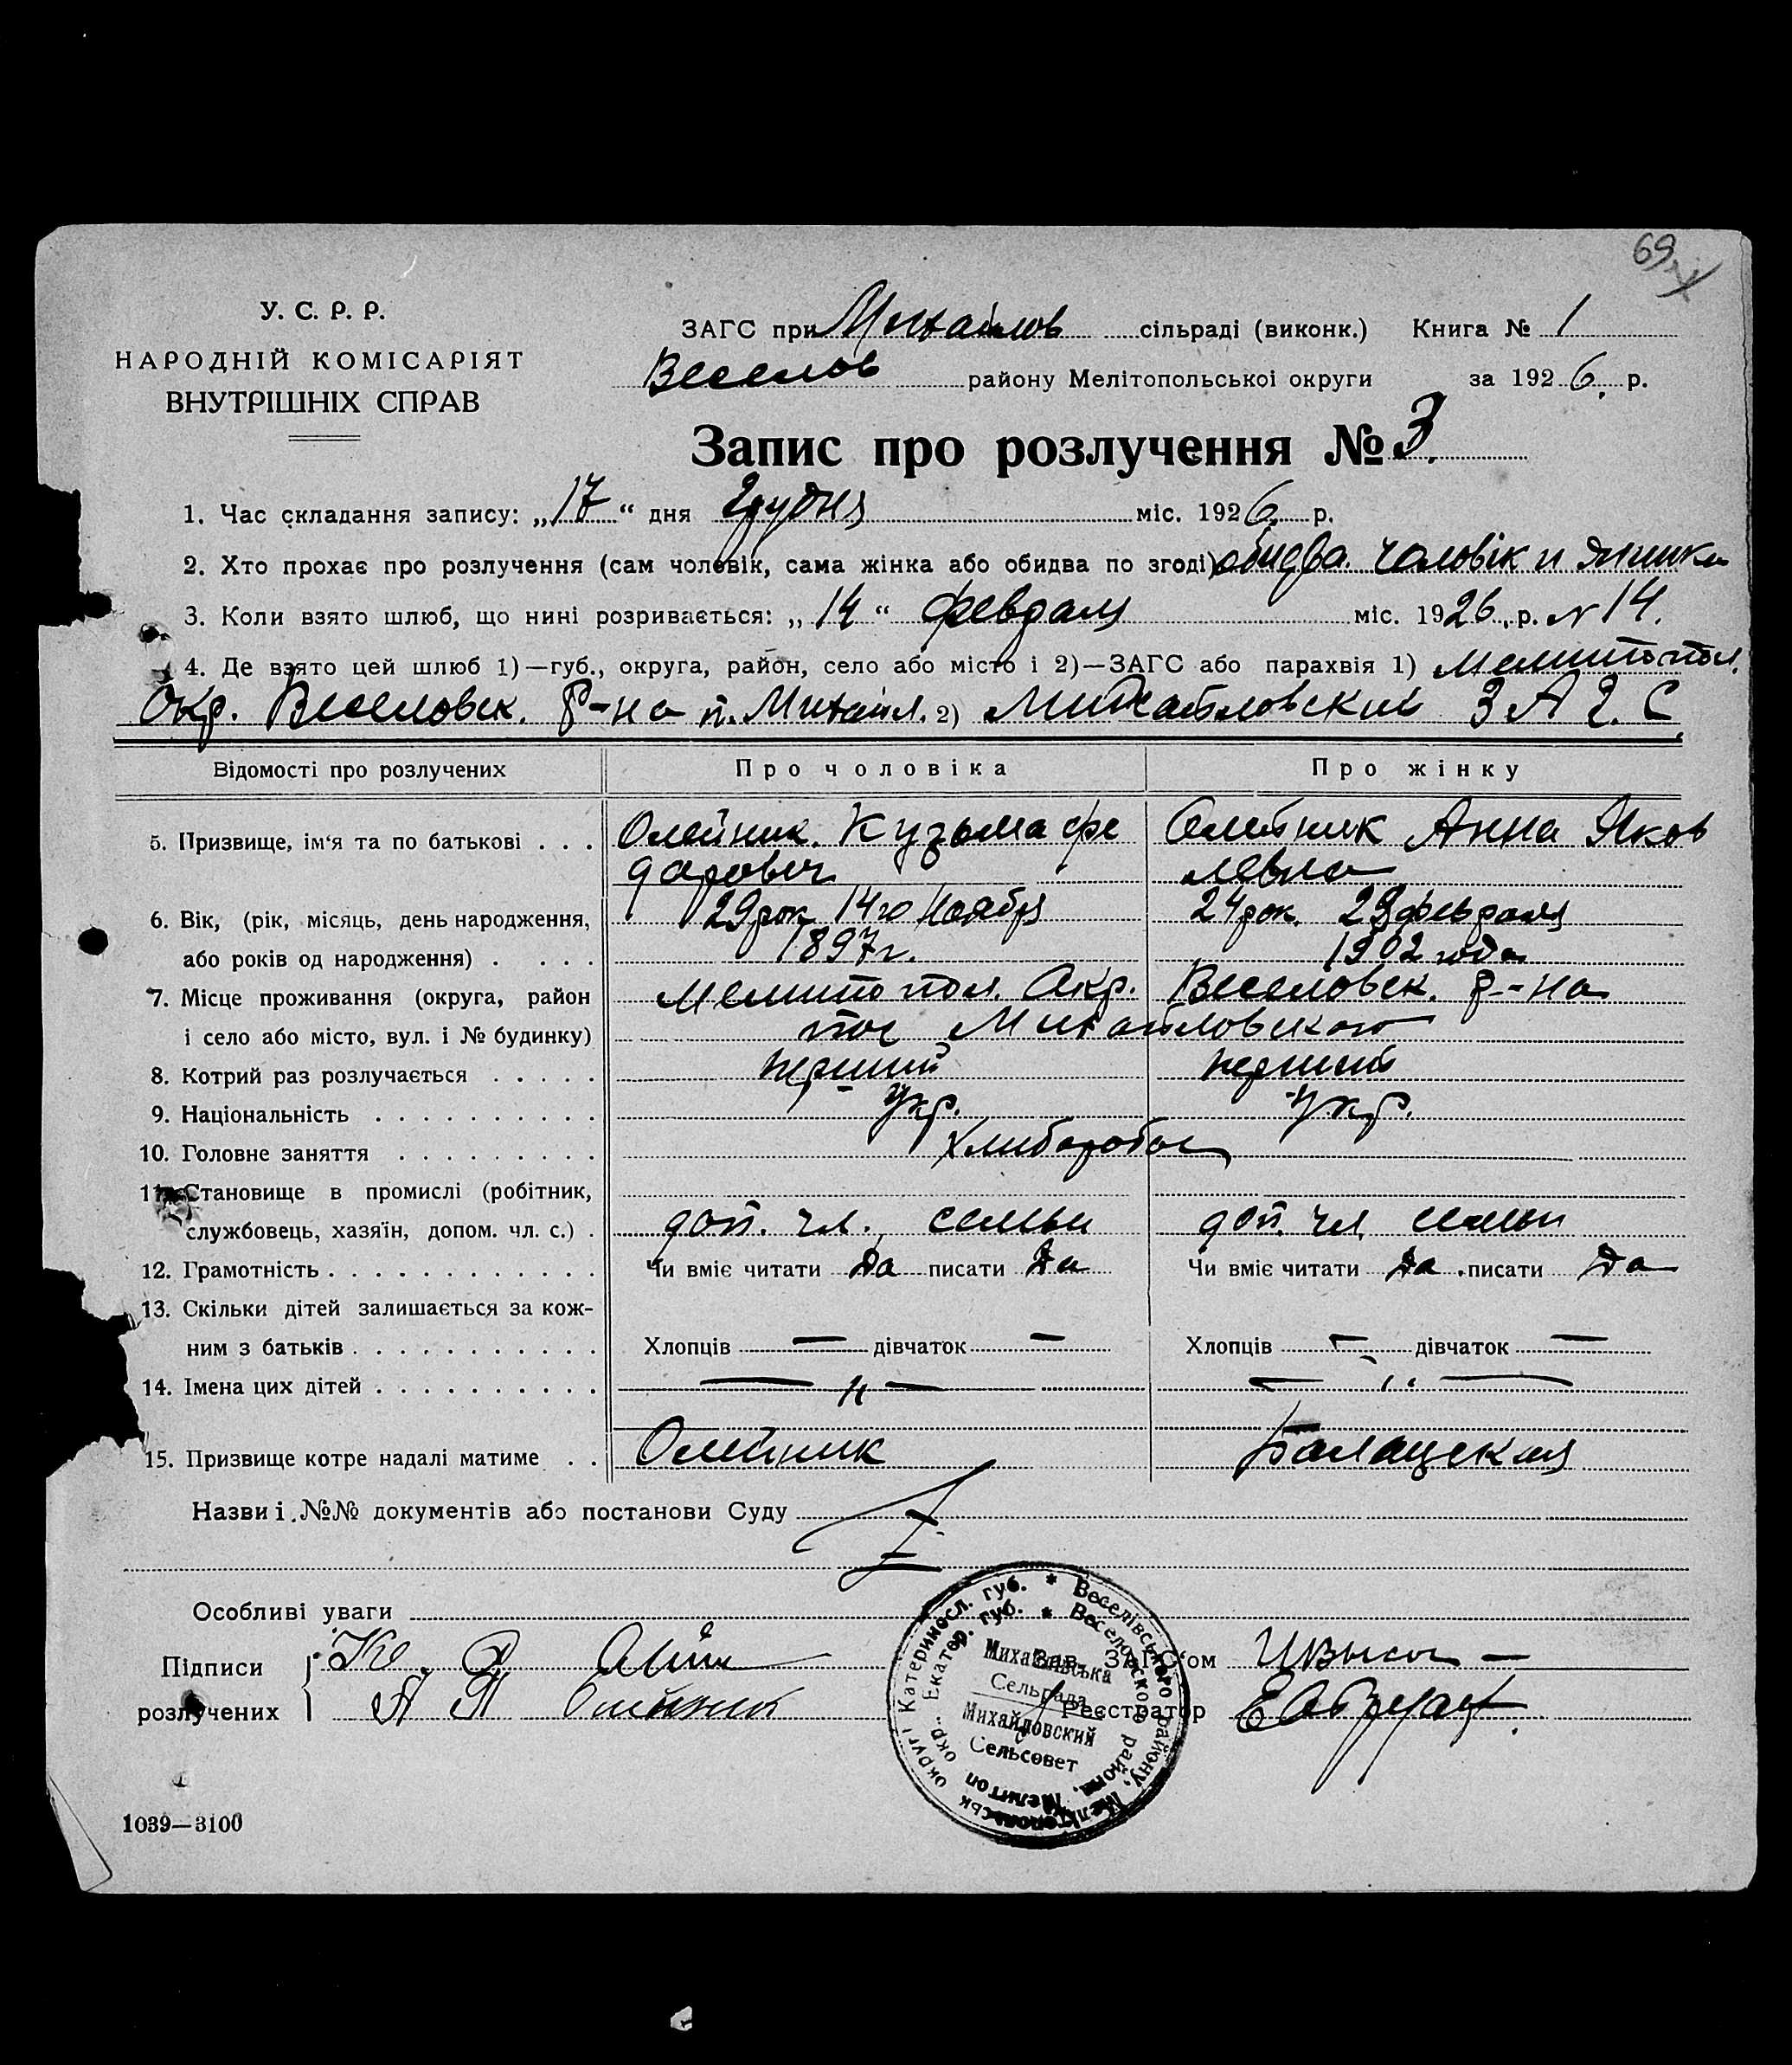 69
У. С. Р. Р.
НАРОДНІЙ КОМІСАРІЯТ
ВНУТРІШНІХ СПРАВ
ЗАГС при Михайлов сільраді (виконк.) Книга № 1
Веселов району Мелітопольської округи за 1926. р.
Запис про розлучення № 3.
1. Час складання запису: „17“ дня Грудня міс. 1926. р.
2. Хто прохає про розлучення (сам чоловік, сама жінка або обидва по згоді) обидва. чоловік и
3. Коли взято шлюб, що нині розривається: „14“ февраля міс. 1926. р. N 14.
4. Де взято цей шлюб 1)—губ., округа, район, село або місто і 2)—ЗАГС або парахвія 1) Мелитопол.
Окр. Веселовск. р-на п. Михайл. 2) Михайловский ЗАГ.С
Відомості про розлучених Про чоловіка Про жінку
5. Призвище, ім'я та по батькові . . . Олейник. Кузьма Фе Олейник Анна Яков
дорович левна
6. Вік, (рік, місяць, день народження, 29 рок 14го Ноября 24 рок. 28 февраля
або років од народження) . . . . 1897г. 1902 года
7. Місце проживання (округа, район Мелитопол. Окр. Веселовск. р-на
і село або місто, вул. і № будинку) пос Михайловского
8. Котрий раз розлучається . . . . . перший перший
9. Національність . . . . . . . . . . Укр. Укр.
10. Головне заняття . . . . . . . . . Хлибороби
11. Становище в промислі (робітник,
службовець, хазяїн, допом. чл. с.) . доп. чл. семьи доп. чл. семьи
12. Грамотність . . . . . . . . . . . . Чи вміє читати Да писати Да Чи вміє читати Да писати Да
13. Скільки дітей залишається за кож-
ним з батьків . . . . . . . . . . . Хлопців — дівчаток — Хлопців — дівчаток —
14. Імена цих дітей . . . . . . . . . . — " — — " —
15. Призвище котре надалі матиме . . Олейник Балацская
Назви і №№ документів або постанови Суду
Особливі уваги
Підписи
розлучених
Зав. ЗАГС'ом
Реєстратор
Катериносл. губ. * Веселівського району, Мелітопольськ округі
Екатер. губ. * Веселовского района, Мелитоп окр.
Михайлівська
Сельрада
Михайловский
Сельсовет
1039—3100